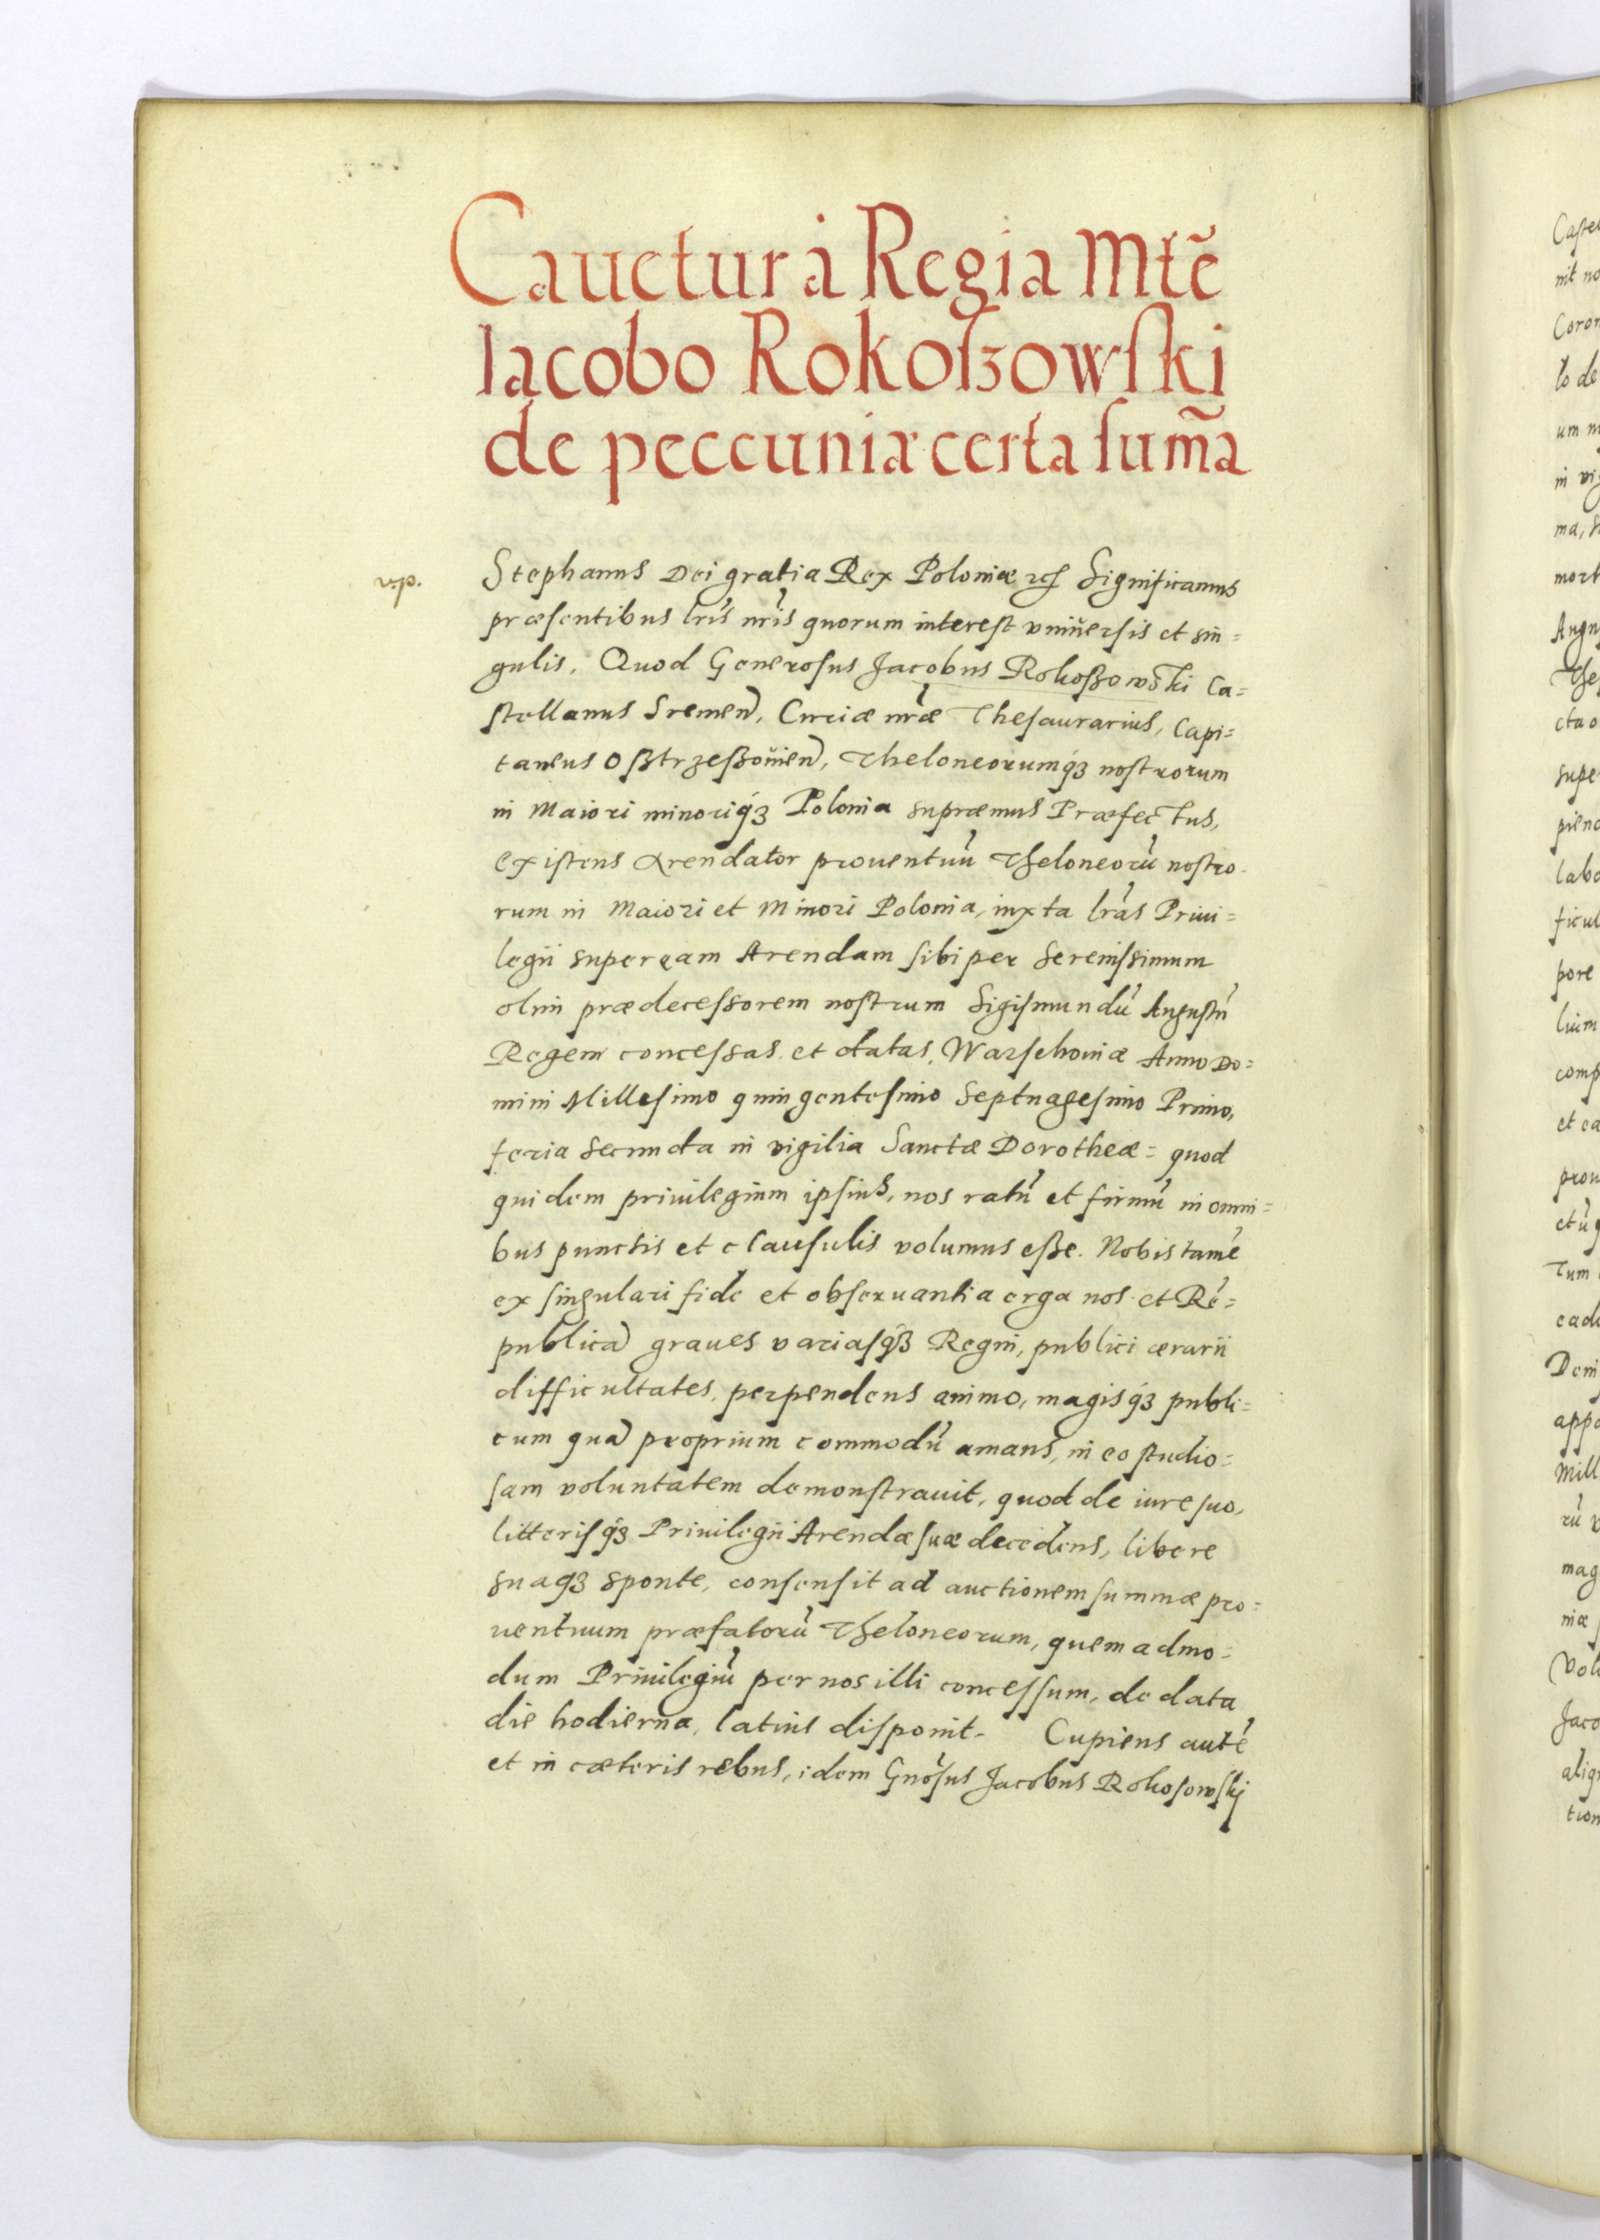 Cauetur á Regia Mtẽ
Iacobo Rokoſzowſki
de peccuniæ certa ſum̃a
v.p.
Stephanus Dei gratia Rex Poloniæ ⁊cʃ Significamus
præsentibus lr̃is nr̃is quorum interest vniuersis et sin=
gulis. Quod Generosus Jacobus Rokoſzowski Ca=
stellanus Sremeñ, Curiæ nr̃æ Thesaurarius, Capi=
taneus Oſztrzeſzouieñ, Theloneorumqꝫ nostrorum
in Maiori minoriqꝫ Polonia supræmus Præfectus,
existens Arendator prouentuũ Theloneorũ nostro
rum in Maiori et Minori Polonia, iuxta lr̃as Priui=
legii super eam Arendam sibi per Serenissimum
olim prædecessorem nostrum Sigismundũ Augustũ
Regem concessas et datas Warschouiæ Anno Do=
mini Millesimo quingentesimo Septuagesimo Primo,
feria secunda in vigilia Sanctæ Dorotheæ= quod
quidem priuilegium ipsius, nos ratũ et firmũ in omni=
bus punctis et clausulis volumus eſze. Nobis tamẽ
ex singulari fide et obseruantia erga nos et Rẽ=
publicã graues variasqꝫ Regni, publici ærarii
difficultates perpendens animo, magisqꝫ publi=
cum quã proprium commodũ amans, in eo studio=
sam voluntatem demonstrauit, quod de iure suo,
litterisqꝫ Priuilegii Arendæ suæ decedens, libere
suaqꝫ sponte, consensit ad auctionem summæ pro=
uentuum præfatorũ Theloneorum, quemadmo=
dum Priuilegiũ per nos illi concessum, de data
die hodierna, latius disponit. Cupiens autẽ
et in cæteris rebus, idem Gñosus Jacobus Rokosowski